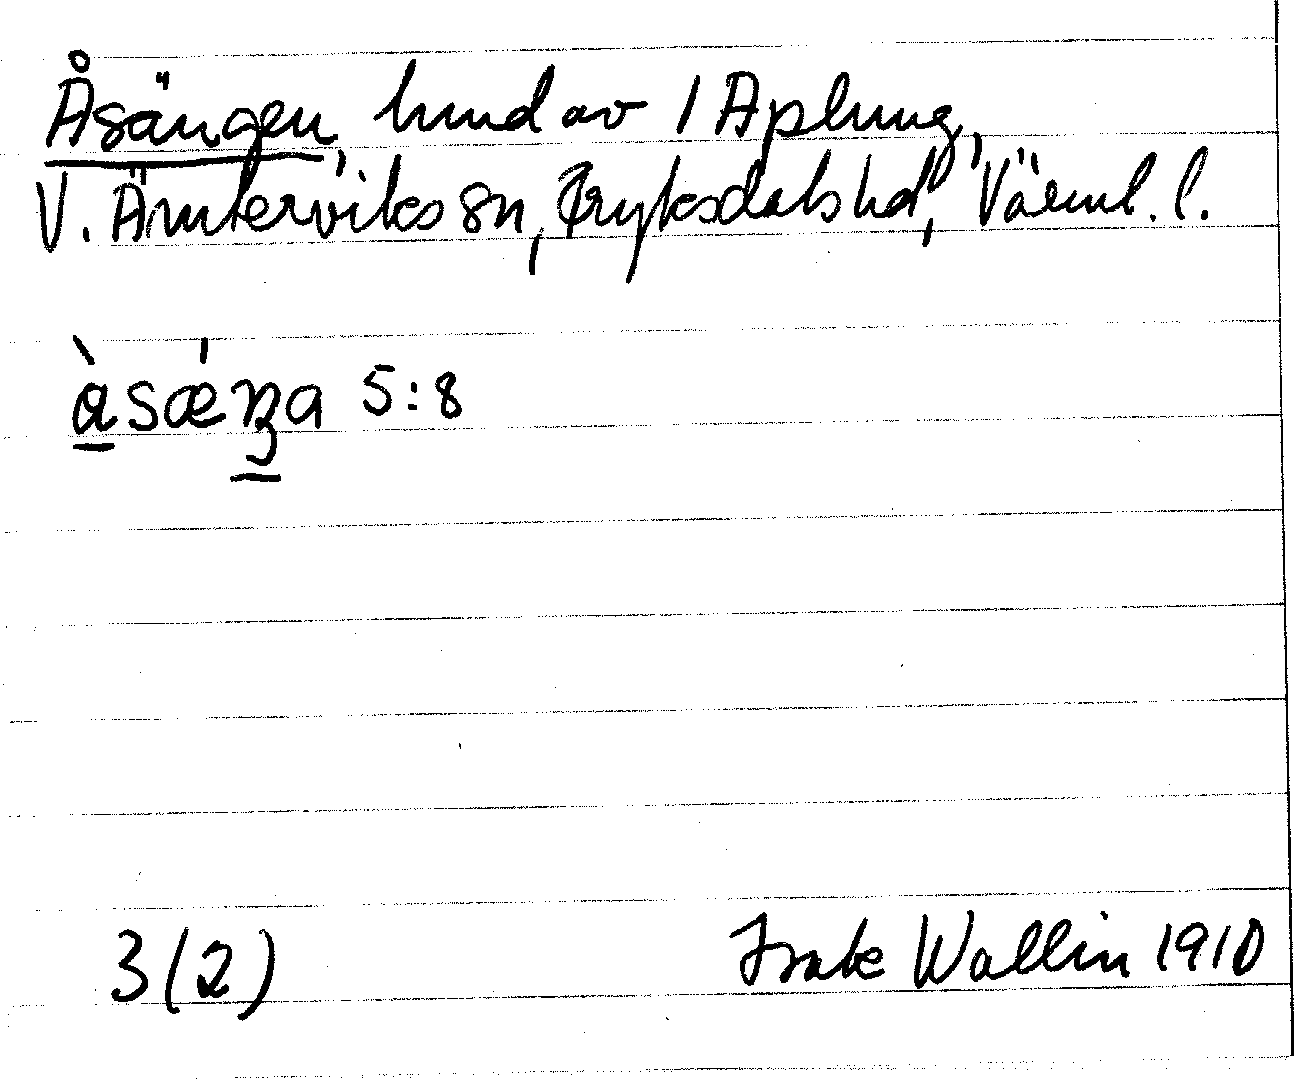 Åsängen, hmd av 1 Aplung,
V. Ämterviks sn, Fryksdals hd, Värml. l.
àsǽŋa 5:8
3(2) Frate Wallin 1910